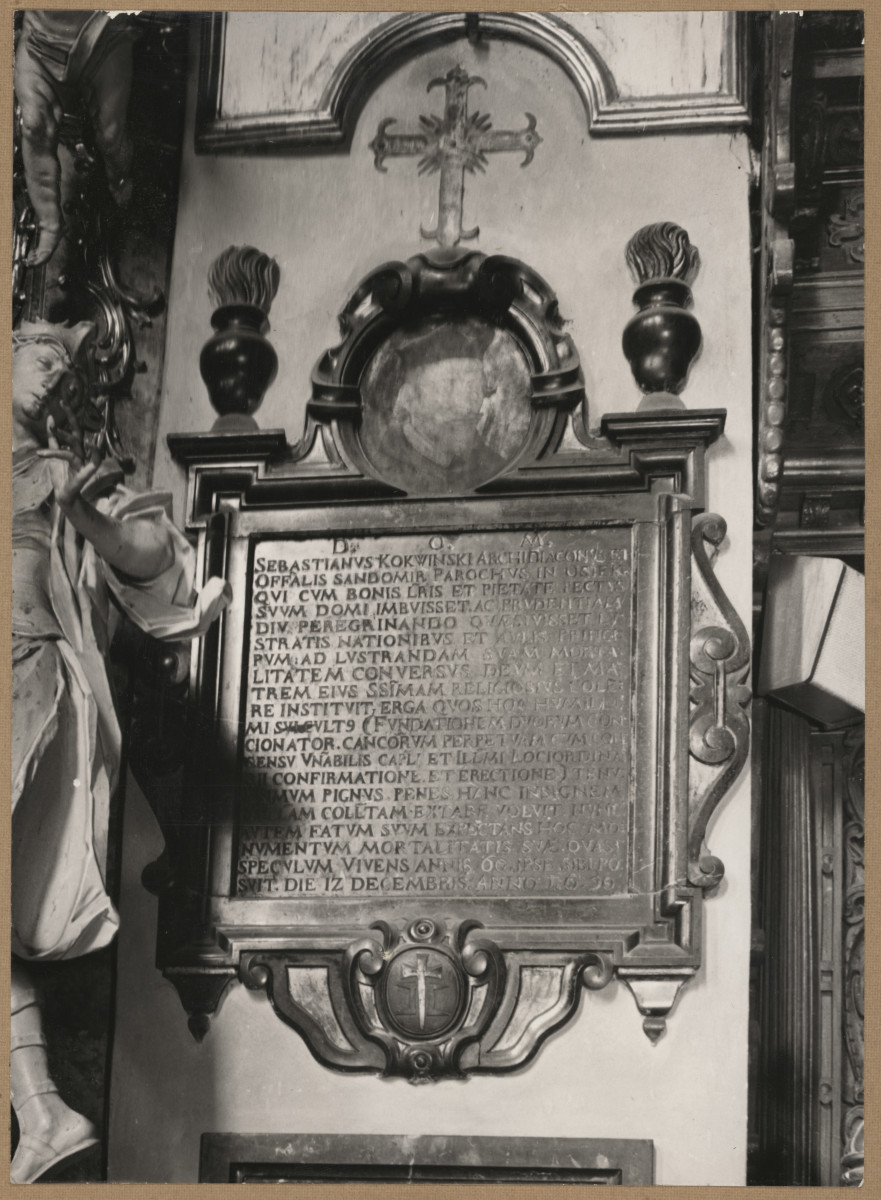 D. O. M.
SEBASTIANVS KOKWINSKI ARCHIDIACONVS ET
OFFALIS SANDOMIR PAROCHVS IN
QVI CVM BONIS LRIS ET PIETATE PECTVS
SVVM DOMI IMBVISSET. AC PRVDENTIAM
DIV PEREGRINANDO QVÆSIVISSET. LV
STRATIS NATIONIBVS ET
PVM, AD LVSTRANDAM SVAM MORTA
LITATEM CONVERSVS. DEVM ET MA
TREM EIVS SSIMAM RELIGIOSIVS COLE
RE INSTITVIT, ERGA QVOS HOC HVMILLI
MI SVI CVLT9 (FVNDATIONEM DVORVM CON
CIONATOR. CANCORVM PERPETVAM CVM CON
SENSV VNABILIS CAPL' ET ILLMI LOCI ORDINA
RII CONFIRMATIONE. ET ERECTIONE) TENV
ISSIMVM PIGNVS. PENES HANC INSIGNEM
COLLTAM EXTARE VOLVIT. NVNC
AVTEM FATVM SVVM EXPECTANS HOC MO
NVMENTVM MORTALITATIS SVÆ
SPECVLVM VIVENS ANNIS 60. IPSE SIBI PO
SVIT. DIE 12 DECEMBRIS. ANNO